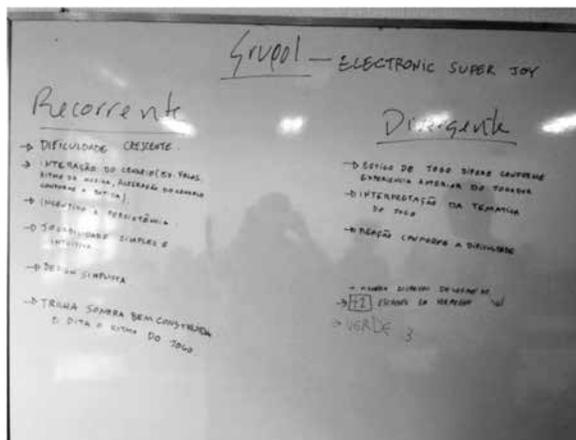 Grupo 1 — ELECTRONIC SUPER JOY
Recorrente
→ DIFICULDADE CRESCENTE.
→ INTERAÇÃO DO CENÁRIO (EX: FALAS,
RITMO DA MÚSICA, ALTERAÇÃO DO CENÁRIO
CONFORME A BATIDA).
→ INCENTIVO A PERSISTÊNCIA
→ JOGABILIDADE SIMPLES E
INTUITIVA.
→ DESIGN SIMPLISTA
→ TRILHA SONORA BEM CONSTRUÍDA
E DITA O RITMO DO JOGO.
Divergente
→ ESTILO DE JOGO DIFERE CONFORME
EXPERIENCIA ANTERIOR DO JOGADOR
→ INTERPRETAÇÃO DA TEMATICA
DO JOGO
→ REAÇÃO CONFORME A DIFICULDADE
→ 12
→ VERDE 3